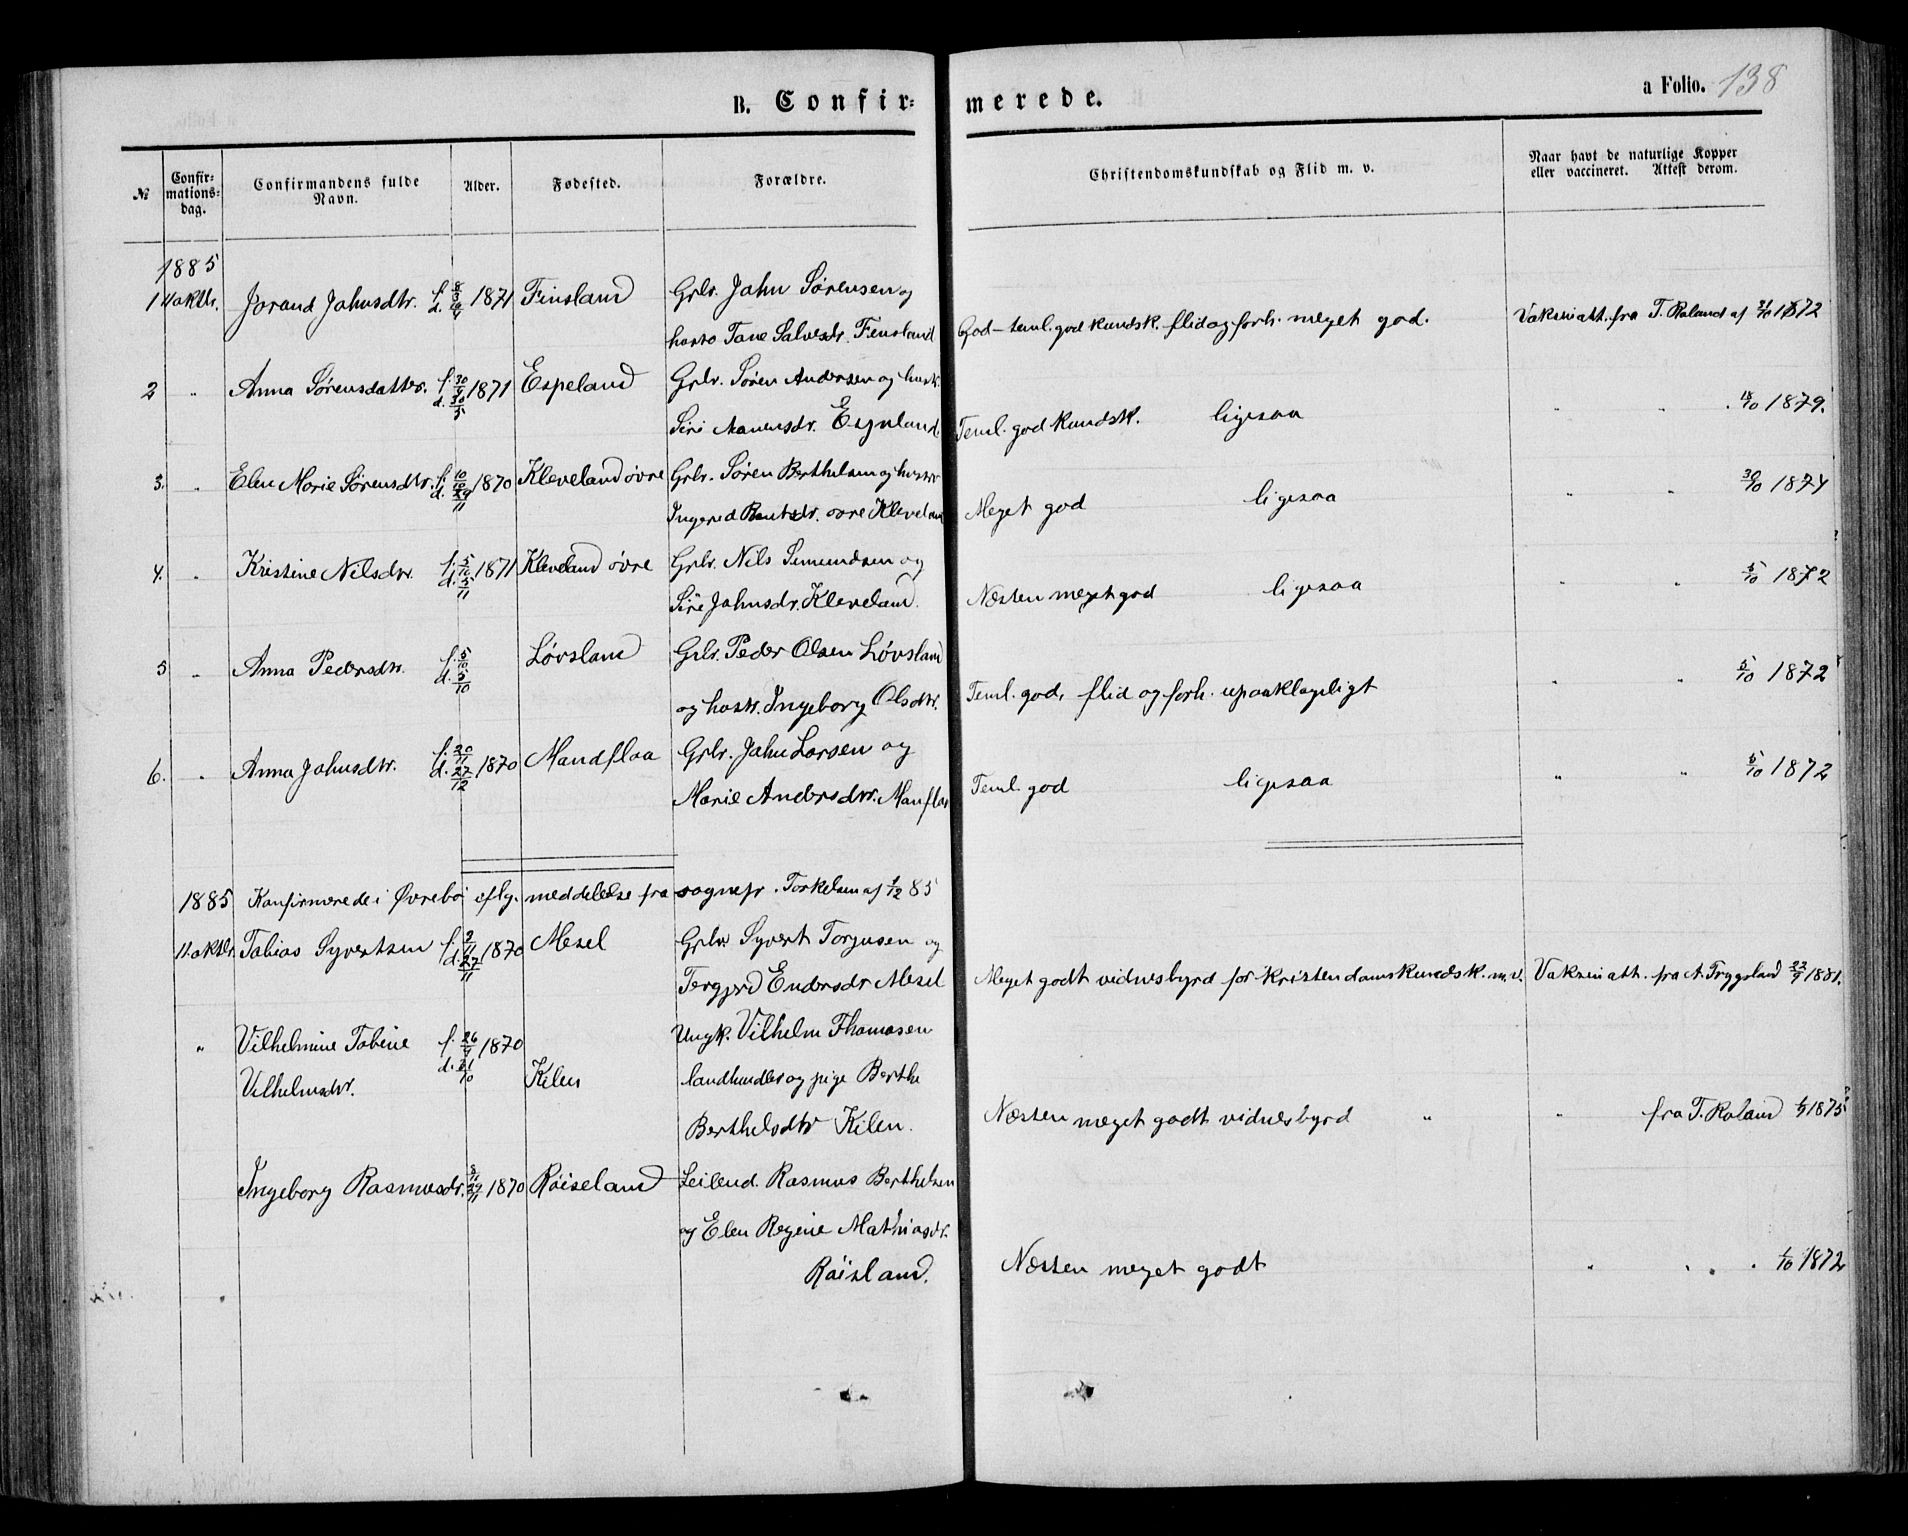 B. Confir-
merede.
a Folio. 138
№
Confir-
mations-
dag.
Confirmandens fulde
Navn.
Alder.
Fødested.
Forældre.
Christendomskundskab og Flid m. v.
Naar havt de naturlige Kopper
eller vaccineret. Attest derom.
1885
1 11 oktbr. Jorand Jahnsdtr. f. 8/3 1871 Finsland Grbr. Jahn Sørensen og
hustro Tane Salvesdr. Finsland God - teml. god kundsk. flid og forh. meget god. Vaksinatt. fra T. Roland af 1872
2 " Anna Sørensdatter. f. 30/4 d. 30/5 1871 Espeland Grbr. Søren Andersen og hustr.
Siri Aanensdr. Espeland Teml. god kundsk. ligesaa " " 18/10 1879.
3. " Elen Marie Sørensdtr. f. 10/10 d. 29/11 1870 Kleveland øvre Grbr. Søren Berthelsen og hustro
Ingered Bentsdr. øvre Kleveland Meget god ligesaa " " 30/10 1874
4. " Kristine Nilsdtr. f. 5/10 d. 5/11 1871 Kleveland øvre Grbr. Nils Simundsen og
Siri Jahnsdr. Kleveland. Næsten meget god ligesaa " " 5/10 1872
5 " Anna Pedersdtr. f. 5/10 d. 5/10 Løvsland Grbr. Peder Olsen Løvsland
og hustr. Ingeborg Olsdtr. Teml. god, flid og forh. upaaklageligt " " 5/10 1872
6. " Anna Jahnsdtr. f. 20/11 d. 27/12 1870 Mandflaa Grbr. Jahn Larsen og
Marie Andersdtr. Manflaa Teml. god ligesaa " " 5/10 1872
1885 Konfirmerede i Øvrebø iflg. meddelelse fra sognepr. Torkelsen af 1/12 85
11. oktbr. Tobias Syvertsen f. 2/11 d. 27/11 1870 Mesel Grbr. Syvert Torjusen og
Tergjerd Endersdr Mesel Meget godt vidnesbyrd for kristendomskundsk. m. v. Vaksinatt. fra A. Tryggsland 22/9 1881.
" Vilhelmine Tobine f. 26/9 1870 Ungk. Vilhelm Thomasen
Vilhelmsdtr. d. 21/10 Kilen landhandler og pige Berthe
Berthelsdtr Kilen. Næsten meget godt vidnesbyrd " " fra T. Roland 1875
Ingeborg Rasmusdr. 1870 Røiseland Leilend. Rasmus Berthelsen
og Elen Regine Mathiasdr.
Røisland. Næsten meget godt " " " 1/10 1872